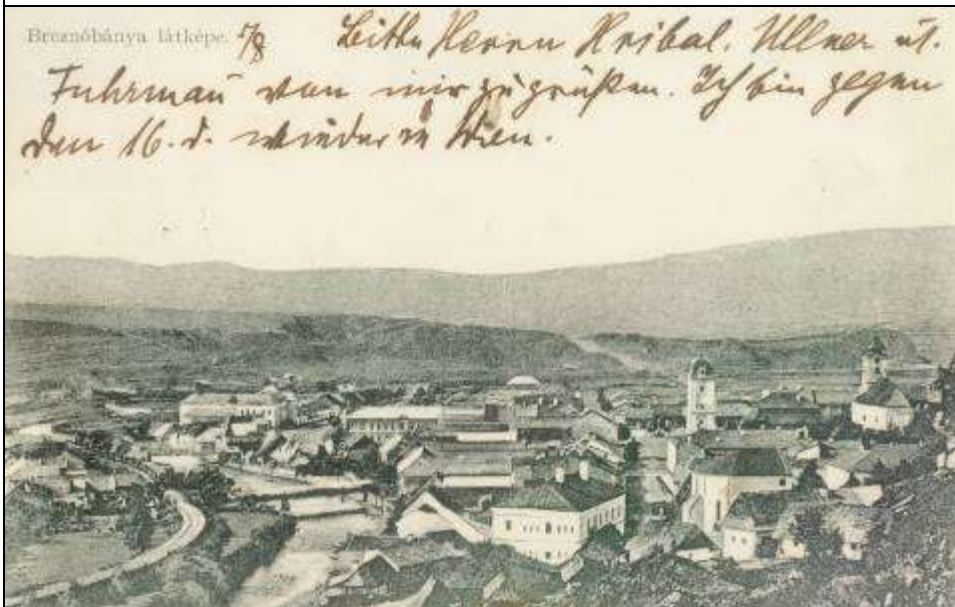 Breznóbánya látképe. 7/8 Bitte Herrn Hribal. Ullner u.
Fuhrman̄ von mir zu grüßen. Ich bin gegen
den 16. d. wieder in Wien.